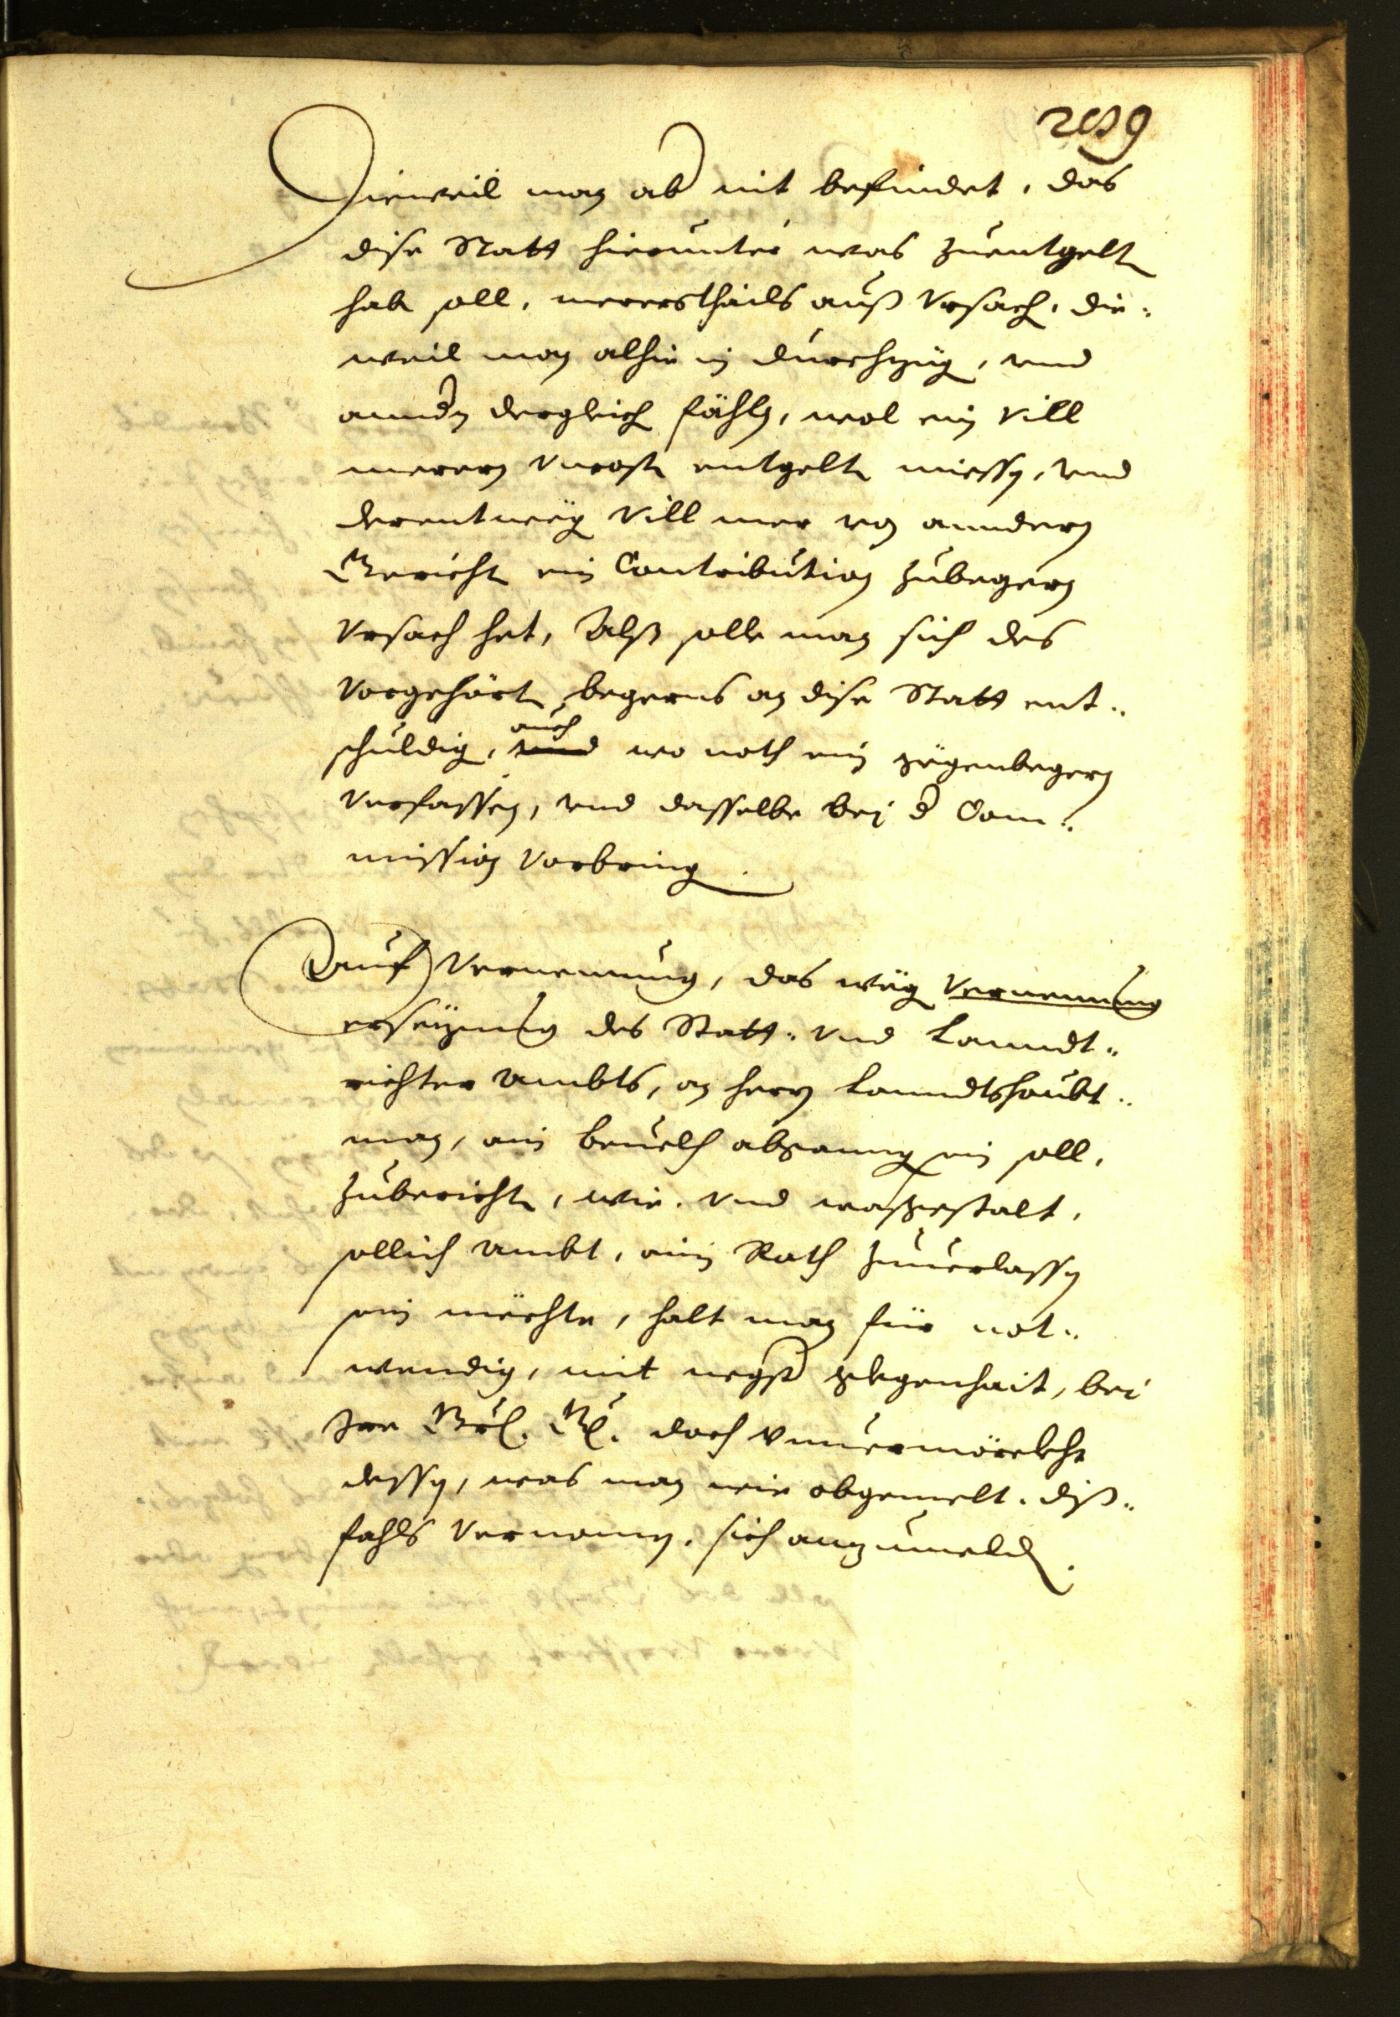 209
Dieweil man aber nit befindet, das
dise Statt hierunter was zuentgelten
haben soll, merersthails auß Vrsach, die¬
weil man alhie in durchzüg, vnd
anndern dergleich fähln, wol ein Vill
merern Vncosten entgelten miessen, vnd
derentweg Vill mer von anndern
Gerichten ein Contribution zubegern
Vrsach het, Alß solle man sich des
Vorgehörten begerns an dise Statt ent¬
schuldigen, auch wo noth ein gegenbegern
Verfassen, vnd dasselbe bei der Com¬
mission Vorbringen.
Auf Vernemung, das wegen Vernemung
ersezung des Statt- vnd Lanndt¬
richter Ambts, an herrn Lanndtshaubt¬
man, ain beuelch abganngen sein soll,
zuberichten, wie, vnd wasgestalt,
sollich Ambt, ainem Rath zuuerlassen
sein mechte, halt man für not¬
wendig, mit negster glegenhait, bei
Irer Gr. Gn. doch Vnuermörckht
dessen, was man wie obgemelt, diß¬
fahls Vernomen, sich anzumelden.